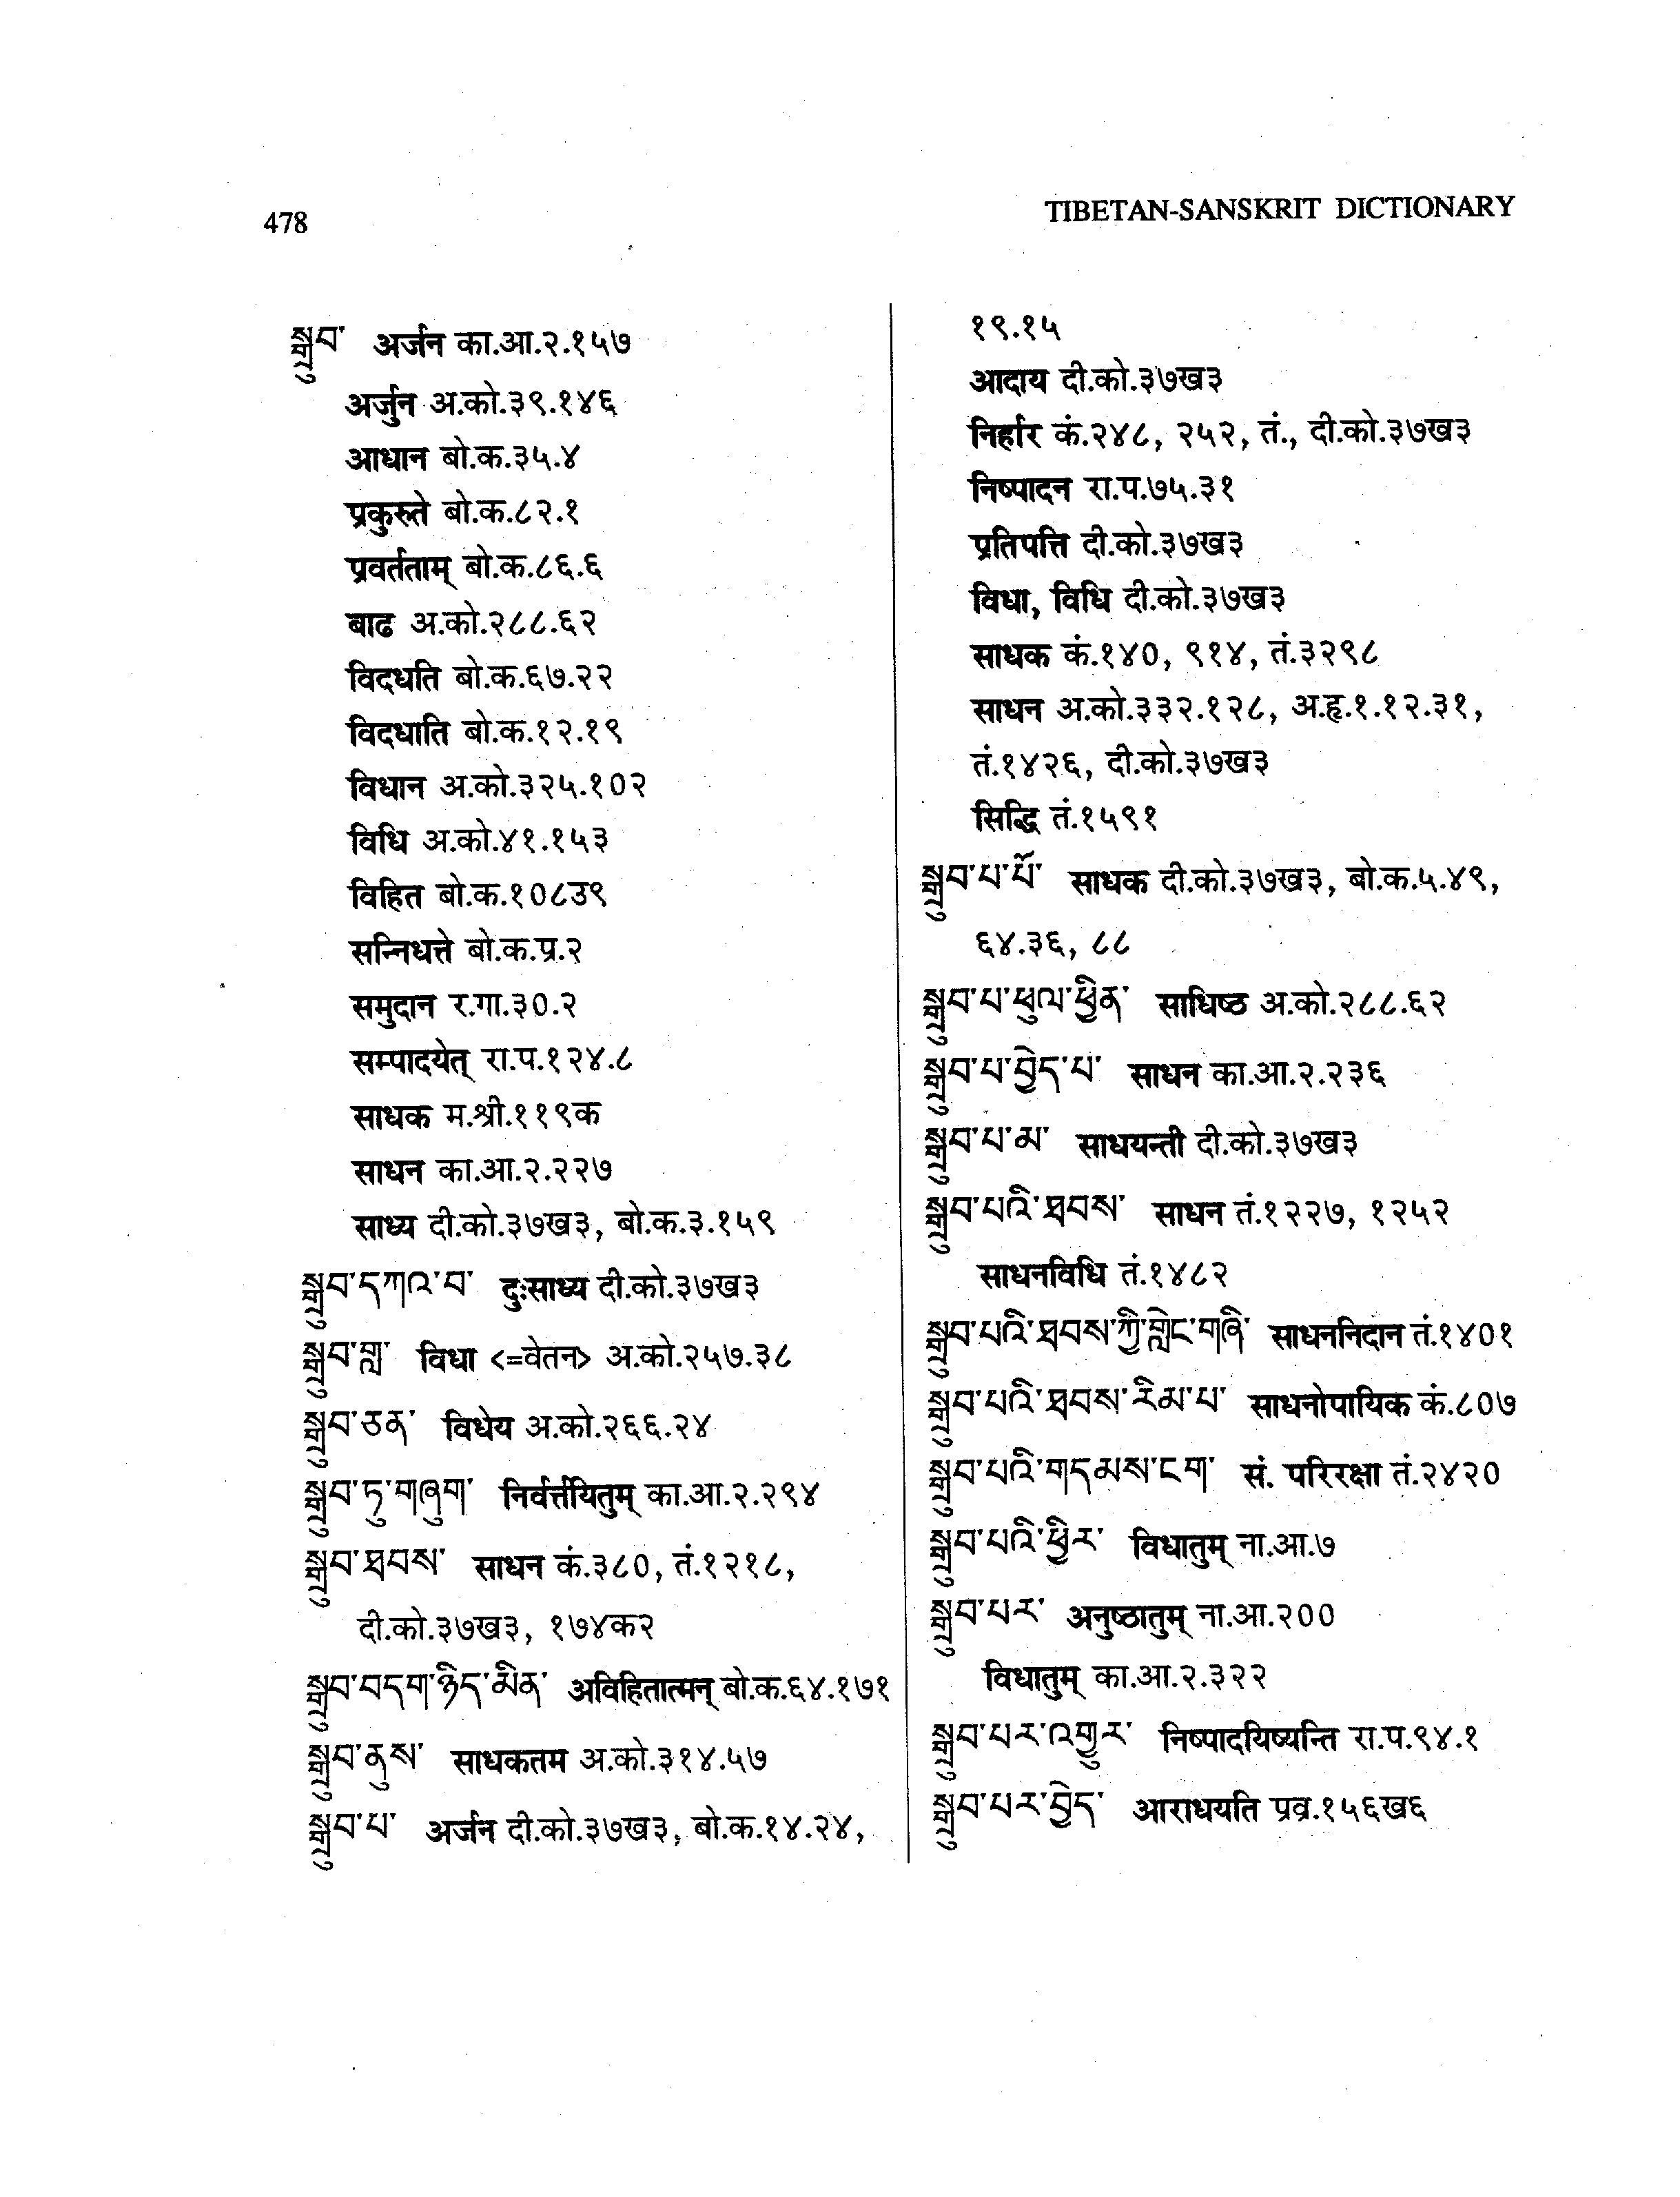 478
TIBETAN-SANSKRIT DICTIONARY
སྒྲུབ་ अर्जन का.आ.२.१५७
अर्जुन अ.को.३९.१४६
आधान बो.क.३५.४
प्रकुरुते बो.क.८२.१
प्रवर्तताम् बो.क.८६.६
बाढ अ.को.२८८.६२
विदधति बो.क.६७.२२
विदधाति बो.क.१२.१९
विधान अ.को.३२५.१०२
विधि अ.को.४१.१५३
विहित बो.क.१०८उ९
सन्निधत्ते बो.क.प्र.२
समुदान र.गा.३०.२
सम्पादयेत् रा.प.१२४.८
साधक म.श्री.११९क
साधन का.आ.२.२२७
साध्य दी.को.३७ख३, बो.क.३.१५९
སྒྲུབ་དཀའ་བ་ दुःसाध्य दी.को.३७ख३
སྒྲུབ་གླ་ विधा <=वेतन> अ.को.२५७.३८
སྒྲུབ་ཅན་ विधेय अ.को.२६६.२४
སྒྲུབ་ཏུ་གཞུག་ निर्वर्त्तयितुम् का.आ.२.२९४
སྒྲུབ་ཐབས་ साधन कं.३८०, तं.१२१८,
दी.को.३७ख३, १७४क२
སྒྲུབ་བདག་ཉིད་མིན་ अविहितात्मन् बो.क.६४.१७१
སྒྲུབ་ནུས་ साधकतम अ.को.३१४.५७
སྒྲུབ་པ་ अर्जन दी.को.३७ख३, बो.क.१४.२४,
१९.१५
आदाय दी.को.३७ख३
निर्हार कं.२४८, २५२, तं., दी.को.३७ख३
निष्पादन रा.प.७५.३१
प्रतिपत्ति दी.को.३७ख३
विधा, विधि दी.को.३७ख३
साधक कं.१४०, ९१४, तं.३२९८
साधन अ.को.३३२.१२८, अ.हृ.१.१२.३१,
तं.१४२६, दी.को.३७ख३
सिद्धि तं.१५९१
སྒྲུབ་པ་པོ་ साधक दी.को.३७ख३, बो.क.५.४९,
६४.३६, ८८
སྒྲུབ་པ་ཕུལ་ཕྱིན་ साधिष्ठ अ.को.२८८.६२
སྒྲུབ་པ་བྱེད་པ་ साधन का.आ.२.२३६
སྒྲུབ་པ་མ་ साधयन्ती दी.को.३७ख३
སྒྲུབ་པའི་ཐབས་ साधन तं.१२२७, १२५२
साधनविधि तं.१४८२
སྒྲུབ་པའི་ཐབས་ཀྱི་གླེང་གཞི་ साधननिदान तं.१४०१
སྒྲུབ་པའི་ཐབས་རིམ་པ་ साधनोपायिक कं.८०७
སྒྲུབ་པའི་གདམས་ངག་ सं. परिरक्षा तं.२४२०
སྒྲུབ་པའི་ཕྱིར་ विधातुम् ना.आ.७
སྒྲུབ་པར་ अनुष्ठातुम् ना.आ.२००
विधातुम् का.आ.२.३२२
སྒྲུབ་པར་འགྱུར་ निष्पादयिष्यन्ति रा.प.९४.१
སྒྲུབ་པར་བྱེད་ आराधयति प्रव्र.१५६ख६